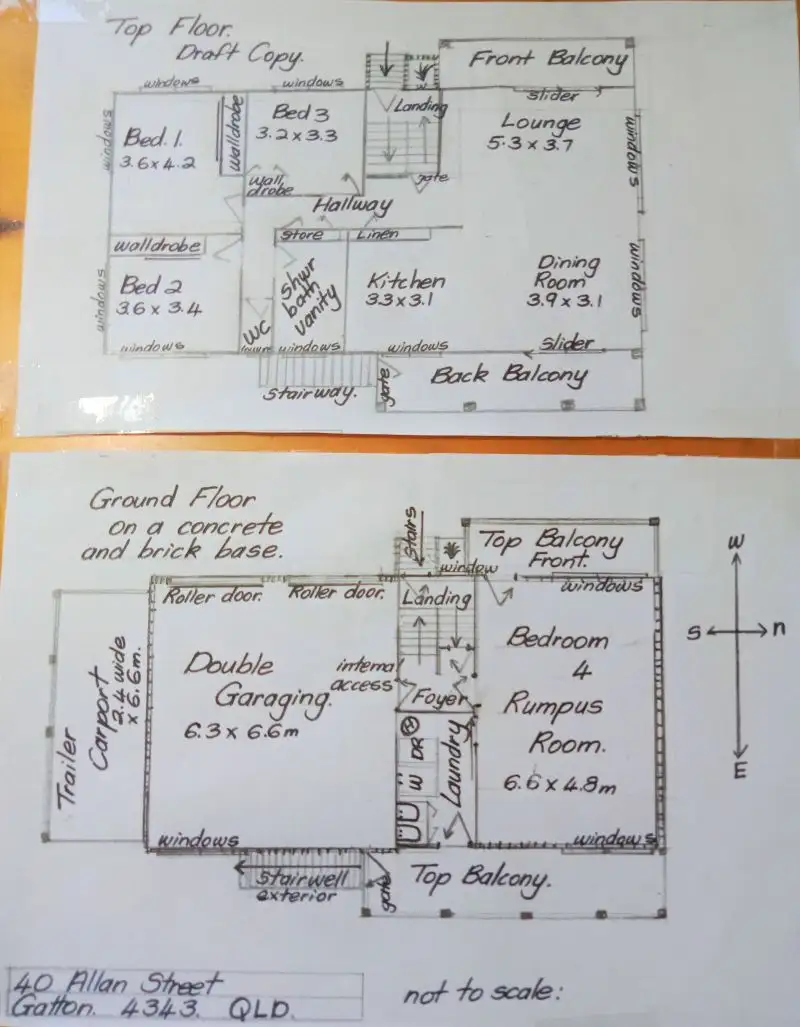 Top Floor.
Draft Copy.
Front Balcony
windows
windows
slider
Landing
Lounge
5.3 x 3.7
windows
Bed. 1.
3.6 x 4.2
walldrobe
Bed 3
3.2 x 3.3
windows
wall
drobe
gate
Hallway
walldrobe
store
Linen
windows
Bed 2
3.6 x 3.4
shwr
bath
vanity
Kitchen
3.3 x 3.1
Dining
Room
3.9 x 3.1
windows
WC
windows
windows
windows
slider
Stairway.
gate
Back Balcony
Ground Floor
on a concrete
and brick base.
Stairs
Top Balcony
Front.
window
windows
Roller door.
Roller door.
Landing
W
S
n
E
Trailer
Carport
2.4 wide
x 6.6m.
Double
Garaging.
6.3 x 6.6m
internal
access
Foyer
Bedroom
4
Rumpus
Room.
6.6 x 4.8m
DR
W
Laundry
windows
windows
Stairwell
exterior
gate
Top Balcony.
40 Allan Street
Gatton. 4343. QLD.
not to scale: